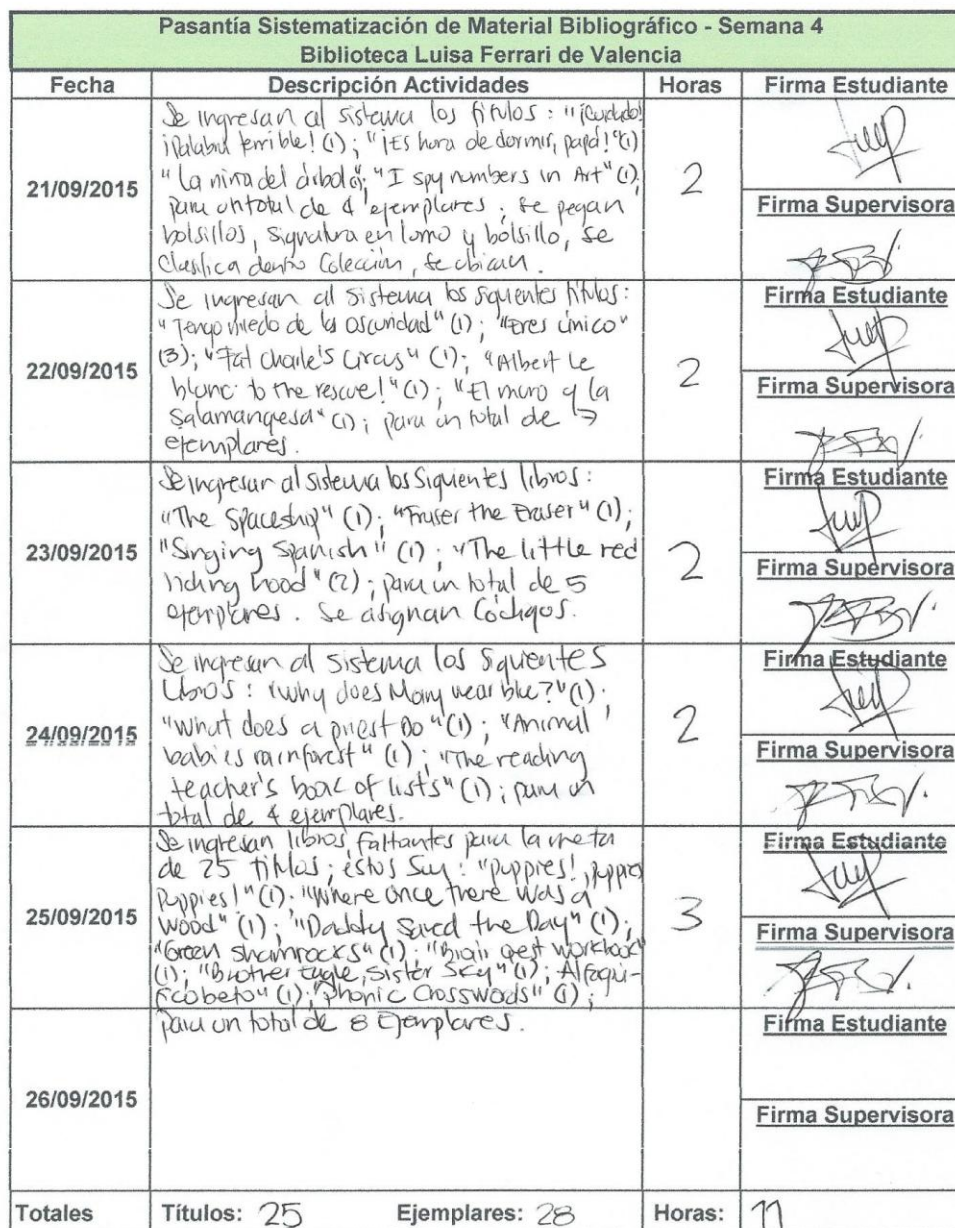 Pasantía Sistematización de Material Bibliográfico - Semana 4
Biblioteca Luisa Ferrari de Valencia
Fecha Descripción Actividades Horas Firma Estudiante
21/09/2015
Se ingresan al sistema los títulos: "¡Cuidado!
¡Palabra terrible! (1); "¡Es hora de dormir, papá!" (1)
"La niña del árbol"; "I spy numbers in Art" (1),
para un total de 4 ejemplares; se pegan
bolsillos, signatura en lomo y bolsillo, se
Clasifica dentro Colección, se ubican.
2
Firma Supervisora
22/09/2015
Se ingresan al sistema los siguientes títulos:
"Tengo miedo de la oscuridad" (1); "Eres único"
(3); "Fat Charlie's Circus" (1); "Albert le
blanc to the rescue!" (1); "El muro y la
Salamanquesa" (1); para un total de 7
ejemplares.
2
Firma Estudiante
Firma Supervisora
23/09/2015
Se ingresan al sistema los Siguientes libros:
"The Spaceship" (1); "Fraser the Eraser" (1);
"Singing Spanish" (1); "The little red
riding hood" (2); para un total de 5
ejemplares. Se asignan Códigos.
2
Firma Estudiante
Firma Supervisora
24/09/2015
Se ingresan al sistema los siguientes
Libros: "Why does Mary wear blue?" (1);
"What does a priest Do" (1); "Animal
babies rainforest" (1); "The reading
teacher's book of lists" (1); para un
total de 4 ejemplares.
2
Firma Estudiante
Firma Supervisora
25/09/2015
Se ingresan libros faltantes para la meta
de 25 títulos; éstos son: "Puppies!, puppies
Puppies!" (1); "Where once there was a
wood" (1); "Daddy Saved the Day" (1);
"Green shamrocks" (1); "Brain Quest workbook"
(1); "Brother Eagle, Sister Sky" (1);
(1); "Phonic Crosswords" (1);
para un total de 8 Ejemplares.
3
Firma Estudiante
Firma Supervisora
26/09/2015
Firma Estudiante
Firma Supervisora
Totales Títulos: 25 Ejemplares: 28 Horas: 11